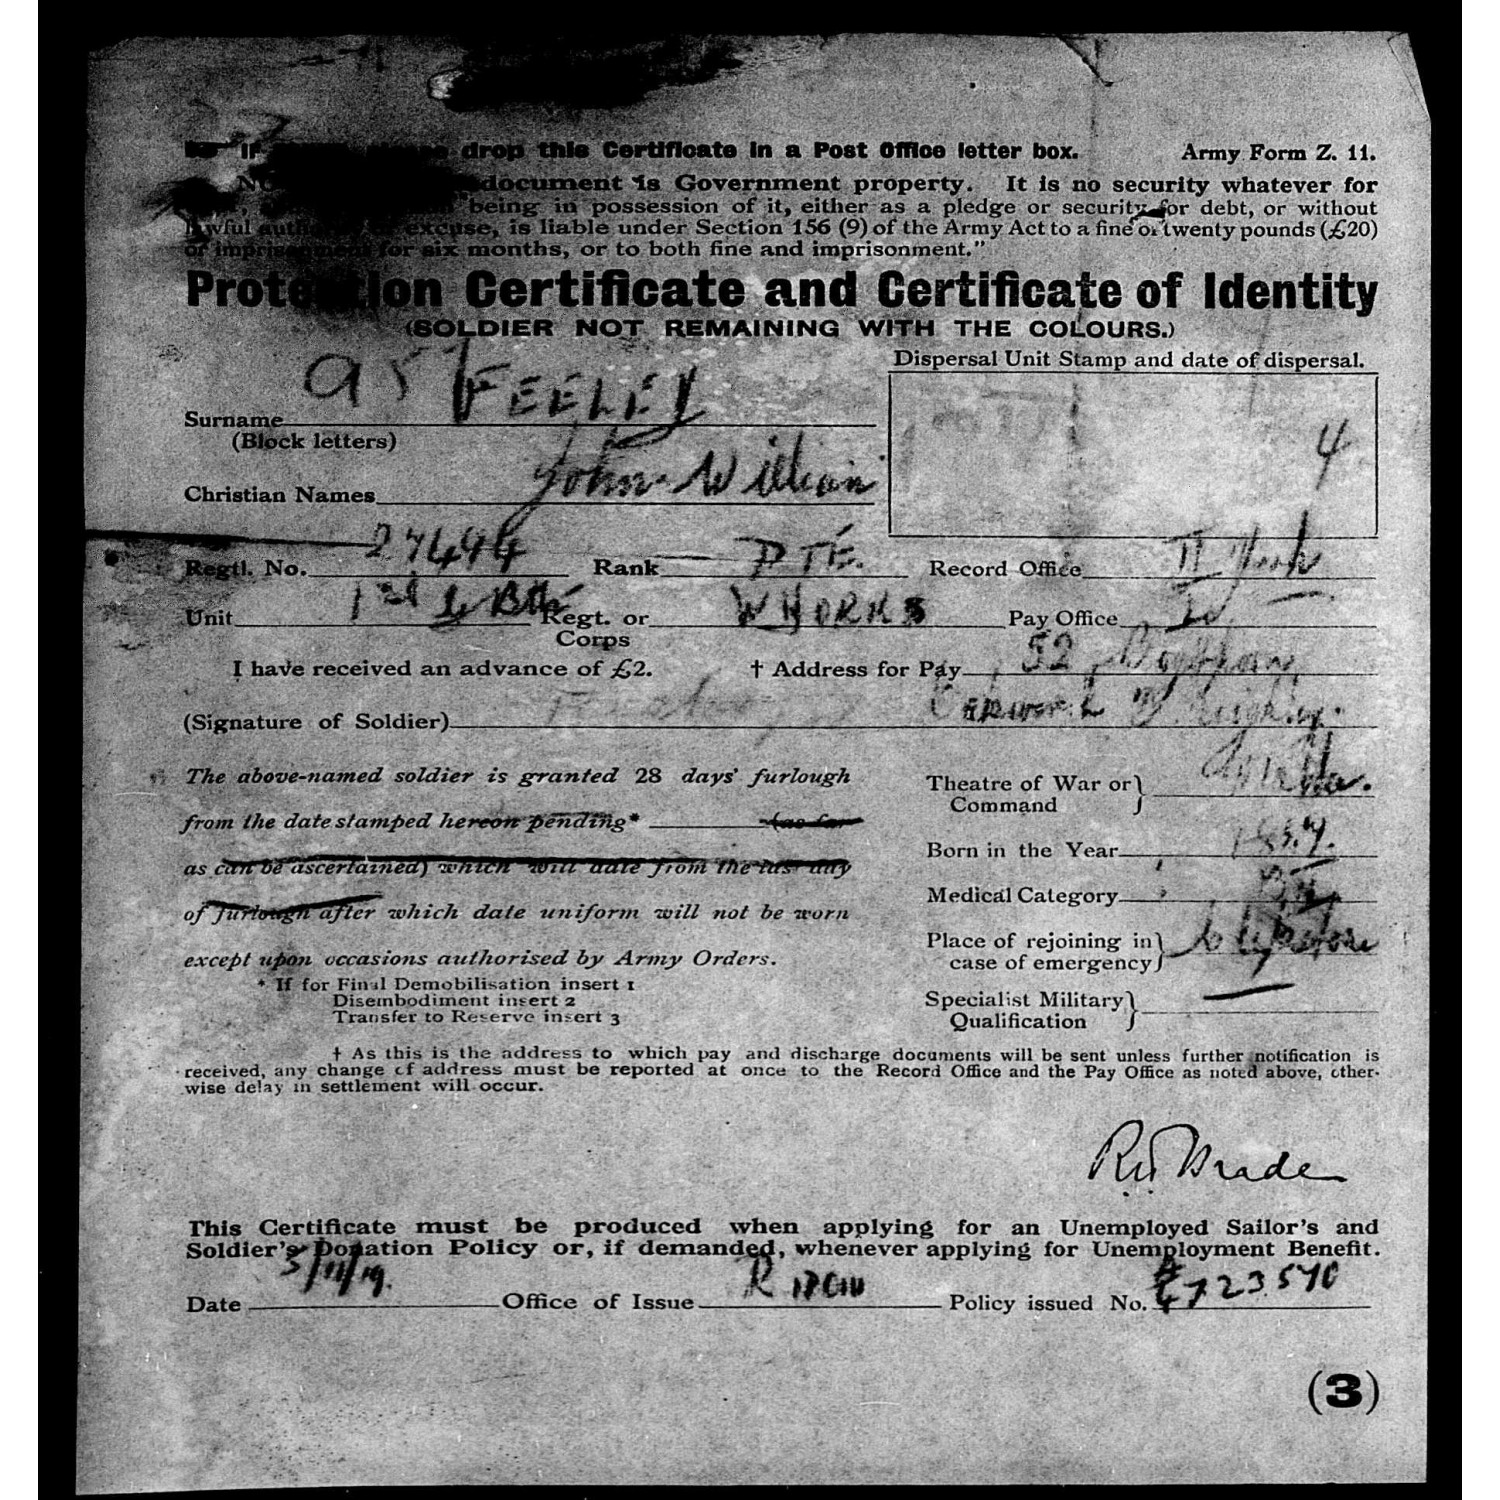 drop this Certificate in a Post Office letter box. Army Form Z. 11.
document is Government property. It is no security whatever for
being in possession of it, either as a pledge or security for debt, or without
lawful excuse, is liable under Section 156 (9) of the Army Act to a fine of twenty pounds (£20)
or imprisonment for six months, or to both fine and imprisonment."
Protection Certificate and Certificate of Identity
(SOLDIER NOT REMAINING WITH THE COLOURS.)
Dispersal Unit Stamp and date of dispersal.
Surname FEELEY
(Block letters)
4
Christian Names John William
Regtl. No. 27494 Rank PTE. Record Office
Unit Regt. or W YORKS Pay Office
Corps
I have received an advance of £2. † Address for Pay 52
(Signature of Soldier) Oakworth Keighley.
The above-named soldier is granted 28 days' furlough
from the date stamped hereon pending* (as far
as can be ascertained) which will date from the last day
of furlough after which date uniform will not be worn
except upon occasions authorised by Army Orders.
* If for Final Demobilisation insert 1
Disembodiment insert 2
Transfer to Reserve insert 3
Theatre of War or
Command
Born in the Year
Medical Category
Place of rejoining in Clipstone
case of emergency
Specialist Military
Qualification
† As this is the address to which pay and discharge documents will be sent unless further notification is
received, any change of address must be reported at once to the Record Office and the Pay Office as noted above, other-
wise delay in settlement will occur.
This Certificate must be produced when applying for an Unemployed Sailor's and
Soldier's Donation Policy or, if demanded, whenever applying for Unemployment Benefit.
Date 5/11/19. Office of Issue Ripon Policy issued No. 723570
(3)